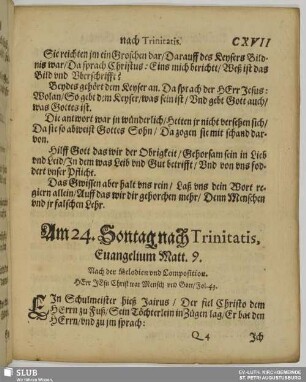 nach Trinitatis. CXVII
Sie reichten jm ein Groschen dar/ Darauff des Keysers Bild-
nis war/ Da sprach Christus: Eins mich bericht/ Weß ist das
Bild vnd Vberschrifft?
Beydes gehört dem Keyser an. Da sprach der HErr Jesus:
Wolan/ So gebt dem Keyser/ was sein ist/ Vnd gebt Gott auch/
was Gottes ist.
Die antwort war jn wünderlich/ Hetten jr nicht versehen sich/
Da sie so abweist Gottes Sohn/ Da zogen sie mit schand dar-
von.
Hilff Gott das wir der Obrigkeit/ Gehorsam sein in Lieb
vnd Leid/ In dem was Leib vnd Gut betrifft/ Vnd von vns fod-
dert vnser Pflicht.
Das Gwissen aber halt vns rein/ Laß vns dein Wort re-
giern allein/ Auff das wir dir gehorchen mehr/ Denn Menschen
vnd jr falschen Lehr.
Am 24. Sontag nach Trinitatis,
Euangelium Matt. 9.
Nach der Melodien vnd Composition.
HErr JEsu Christ war Mensch vnd Gott/
EIn Schulmeister hieß Jairus/ Der fiel Christo dem
HErrn zu Fuß/ Sein Töchterlein in Zügen lag/ Er bat den
HErrn/ vnd zu jm sprach:
Q 4 Ich
SLUB
Wir führen Wissen.
EV.-LUTH. KIRCHGEMEINDE
ST. PETRI AUGUSTUSBURG